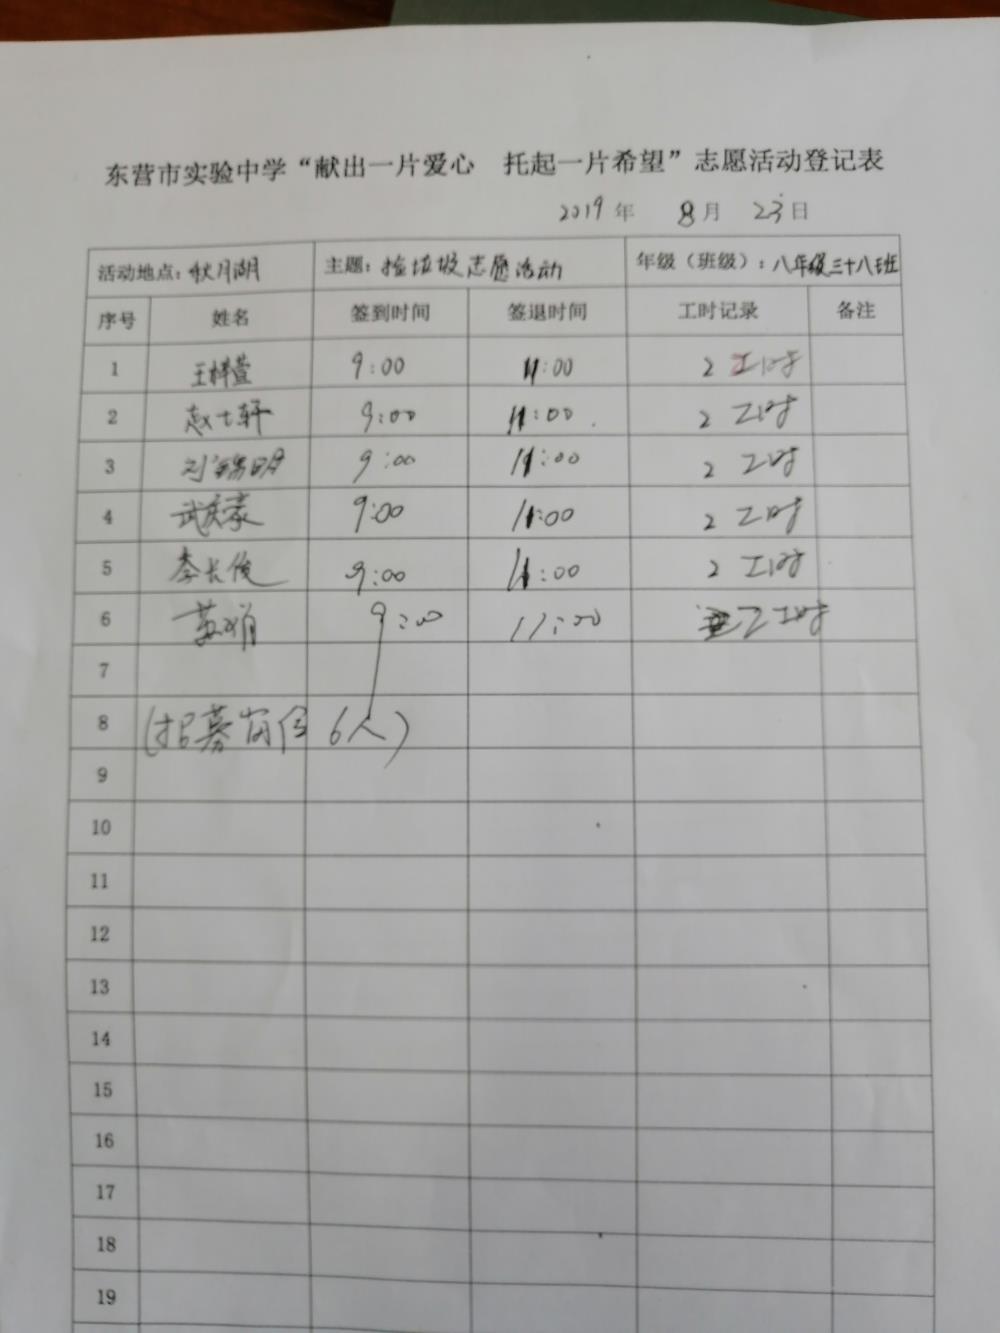 东营市实验中学“献出一片爱心 托起一片希望”志愿活动登记表
2019年 8月 23日
活动地点：秋月湖 主题：捡垃圾志愿活动 年级（班级）：八年级三十八班
序号 姓名 签到时间 签退时间 工时记录 备注
1 王梓萱 9:00 11:00 2 工时
2 赵士轩 9:00 11:00 2 工时
3 刘明 9:00 11:00 2 工时
4 武庆豪 9:00 11:00 2 工时
5 李长俊 9:00 11:00 2 工时
6 9:00 11:00 2工时
7
8 (招募岗位 6人)
9
10
11
12
13
14
15
16
17
18
19